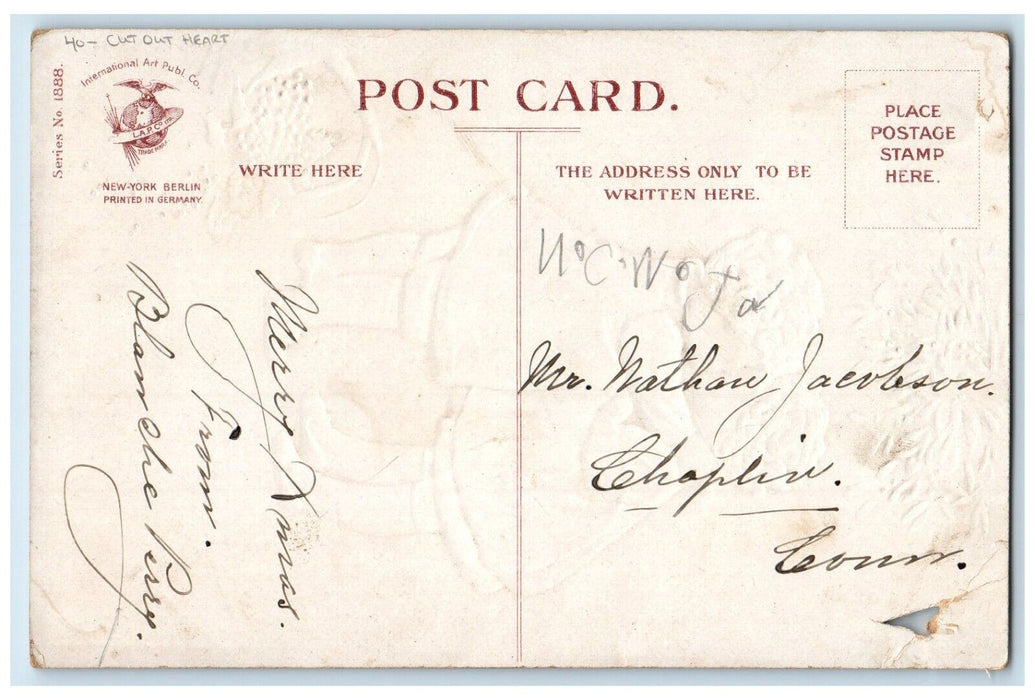 40- CUT OUT HEART
Series No. 1888.
International Art Publ. Co.
I.A.P.Co
TRADE MARK
NEW-YORK BERLIN
PRINTED IN GERMANY.
POST CARD.
WRITE HERE
THE ADDRESS ONLY TO BE
WRITTEN HERE.
PLACE
POSTAGE
STAMP
HERE.
Merry Xmas.
From.
Blanche Perry.
Mr. Nathan Jacobson.
Chaplin.
Conn.